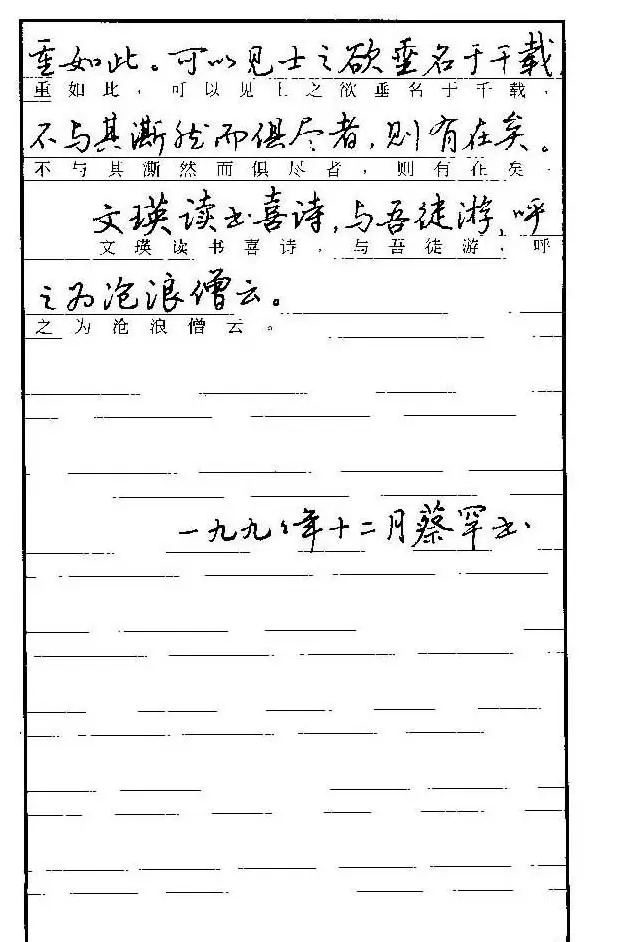 重如此。可以见士之欲垂名于千载,
重如此，可以见士之欲垂名于千载，
不与其澌然而俱尽者,则有在矣。
不与其澌然而俱尽者，则有在矣。
文瑛读书喜诗,与吾徒游,呼
文瑛读书喜诗，与吾徒游，呼
之为沧浪僧云。
之为沧浪僧云。
一九九〻年十二月蔡罕书